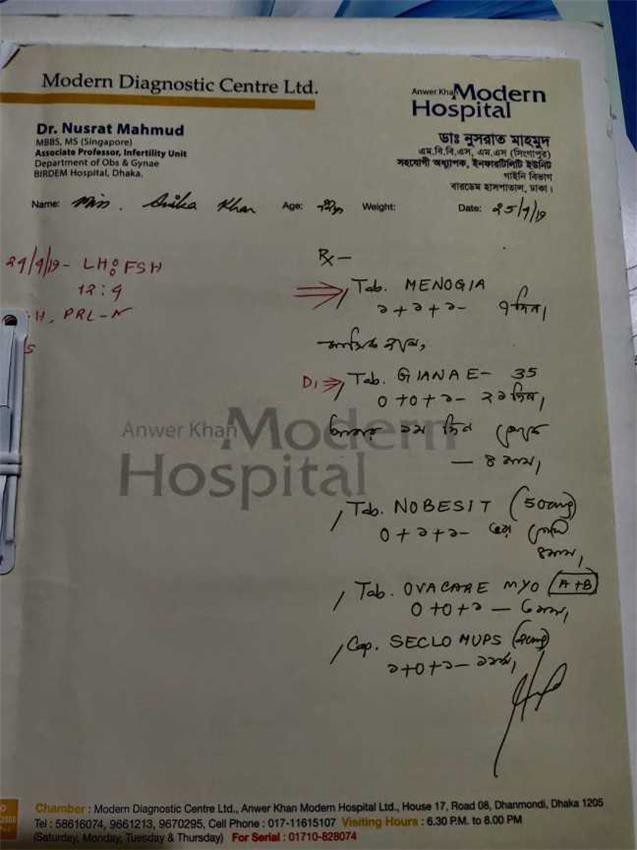 Modern Diagnostic Centre Ltd.
Anwer Khan Modern
Hospital
Dr. Nusrat Mahmud
MBBS, MS (Singapore)
Associate Professor, Infertility Unit
Department of Obs & Gynae
BIRDEM Hospital, Dhaka.
ডাঃ নুসরাত মাহমুদ
এম.বি.বি.এস, এম.এস (সিংগাপুর)
সহযোগী অধ্যাপক, ইনফারটিলিটি ইউনিট
গাইনি বিভাগ
বারডেম হাসপাতাল, ঢাকা।
Name: Miss. Khan Age: Weight: Date: ২৫/৭/১৯
LH: FSH
H, PRL-N
Rx-
Tab. MENOGIA
১+১+১- ৭ দিন,
মাসিক হলে,
D1 Tab. GIANAE- 35
0+0+১- ২১ দিন,
১ম দিন থেকে
- ৪ মাস,
Anwer Khan Modern
Hospital
Tab. NOBESIT (500mg)
0+১+১- ভরা পেটে
৪মাস,
Tab. OVACARE MYO (A+B)
0+0+১ - ৬মাস,
Cap. SECLO MUPS (20mg)
১+0+১- ১মাস,
Chamber : Modern Diagnostic Centre Ltd., Anwer Khan Modern Hospital Ltd., House 17, Road 08, Dhanmondi, Dhaka 1205
Tel : 58616074, 9661213, 9670295, Cell Phone : 017-11615107 Visiting Hours : 6.30 P.M. to 8.00 PM
(Saturday, Monday, Tuesday & Thursday) For Serial : 01710-828074